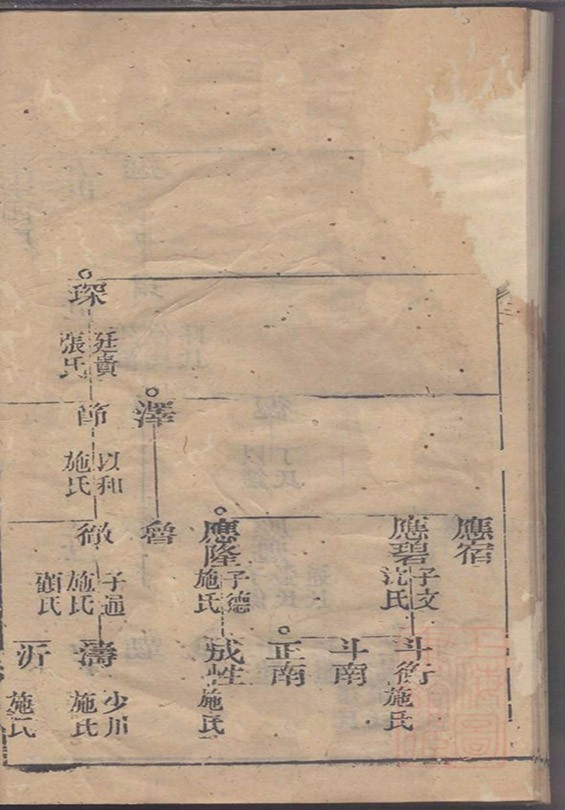 應宿
應碧
子文
沈氏
應隆
子德
施氏
魯
徵
子通
施氏
顧氏
斗衡
施氏
斗南
正南
成性
施氏
濤
少川
施氏
沂
施氏
澤
節
以和
施氏
琛
廷貴
張氏